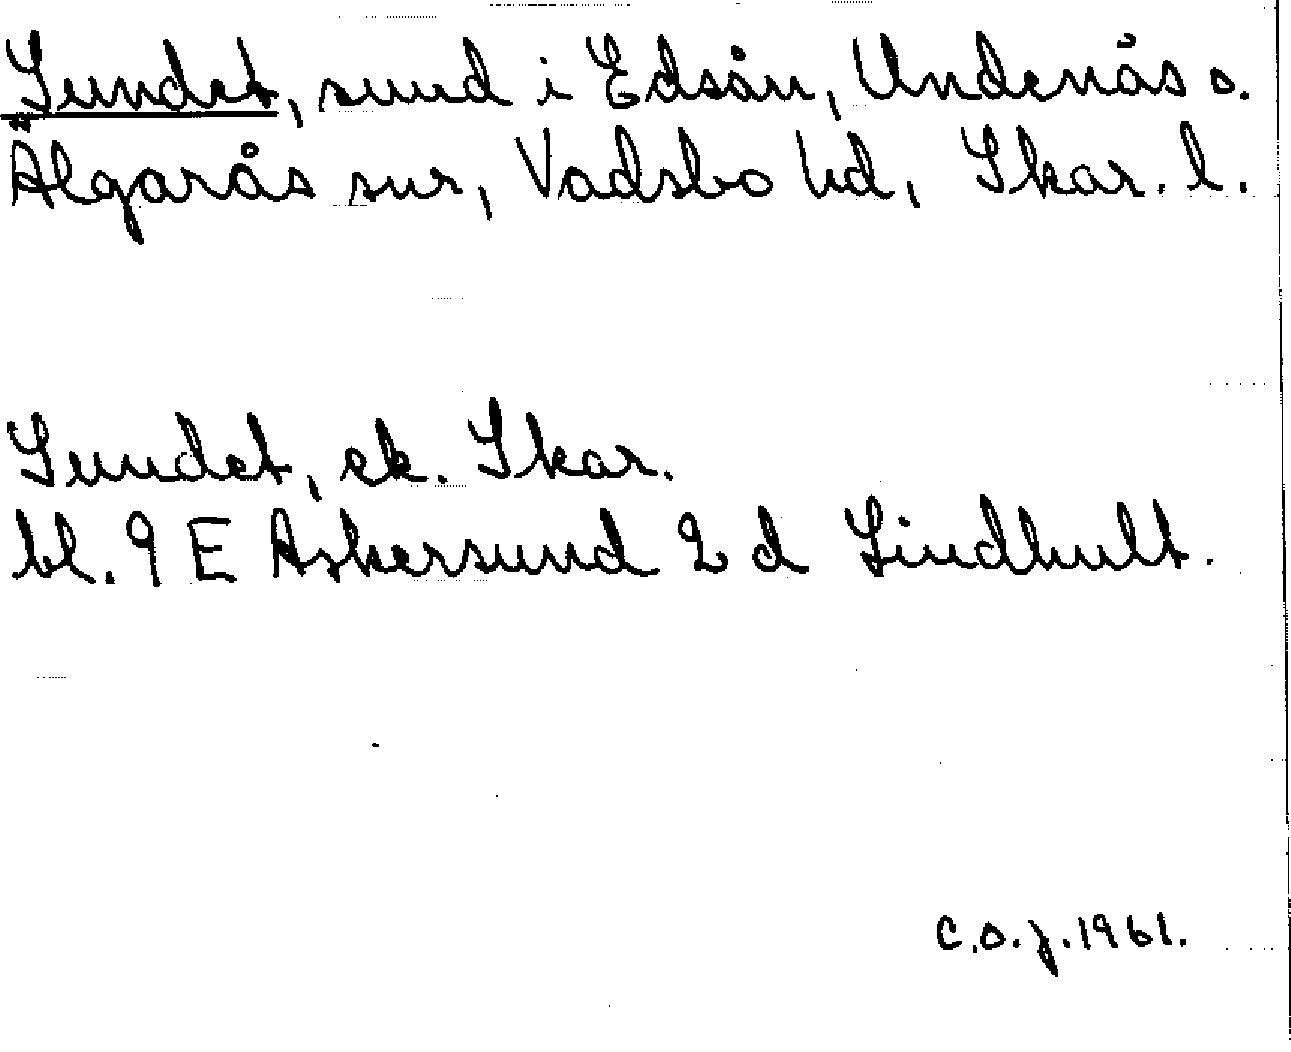 Sundet, sund i Edsån, Undenäs o.
Älgarås snr, Vadsbo hd, Skar. l.
Sundet, ek. Skar.
bl. 9 E Askersund 2 d Lindhult.
C.O.J. 1961.